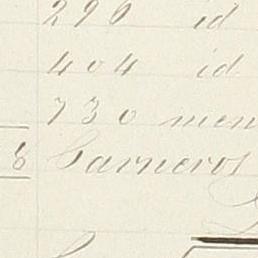 290 id
404 id
730 men
8 Carneros